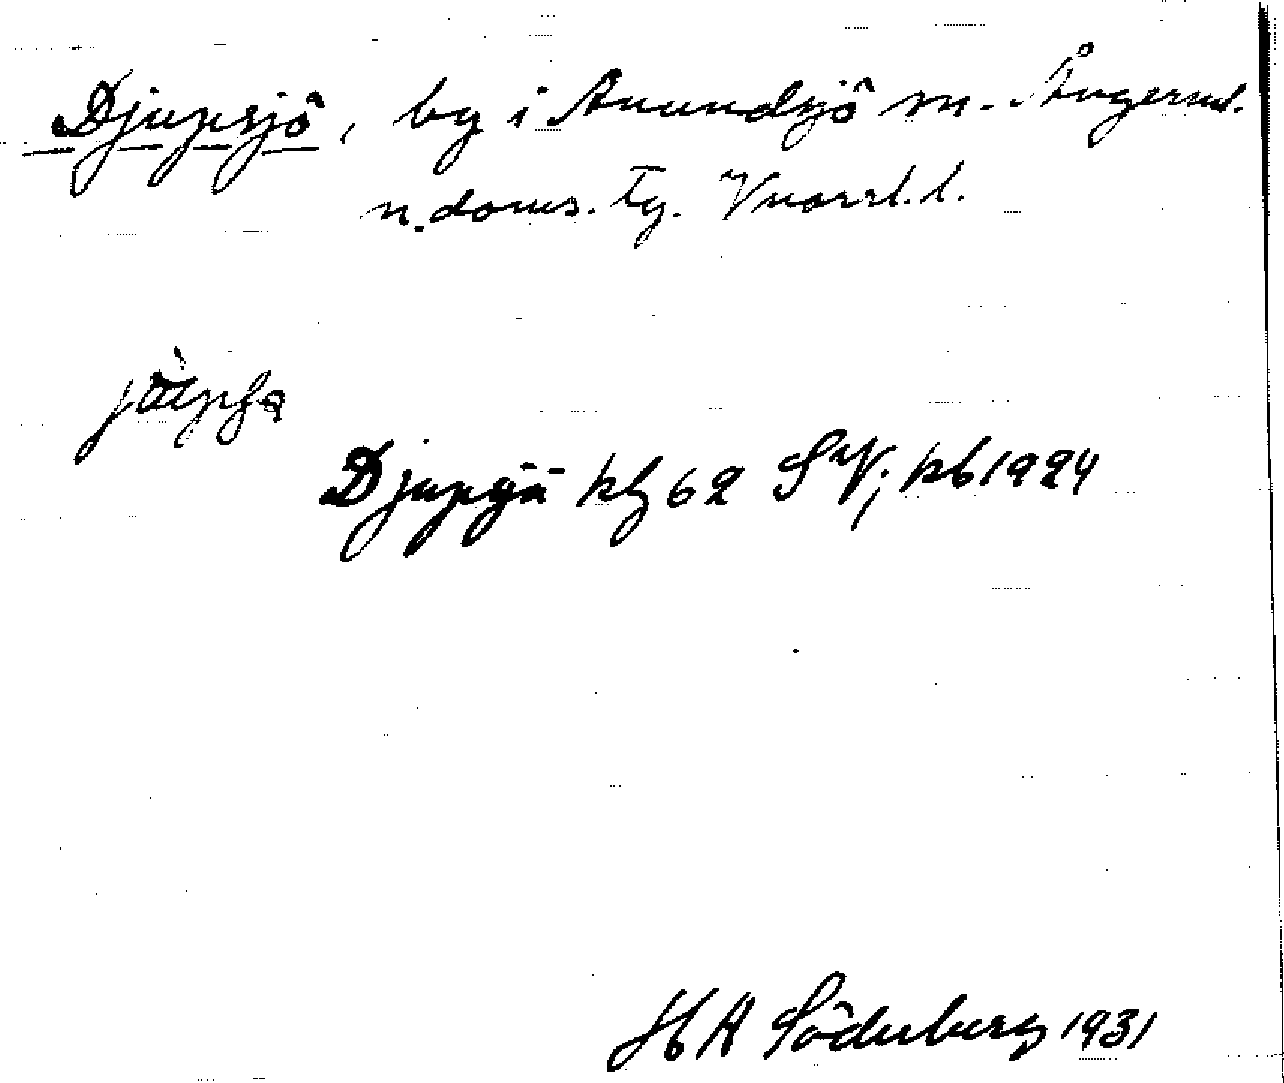 Djupsjö, by i Anundsjö sn. Ångerml.
n. doms. tg. Vnorrl. l.
Djupsjö kb 62 SV; kb 1924
H A Söderberg 1931